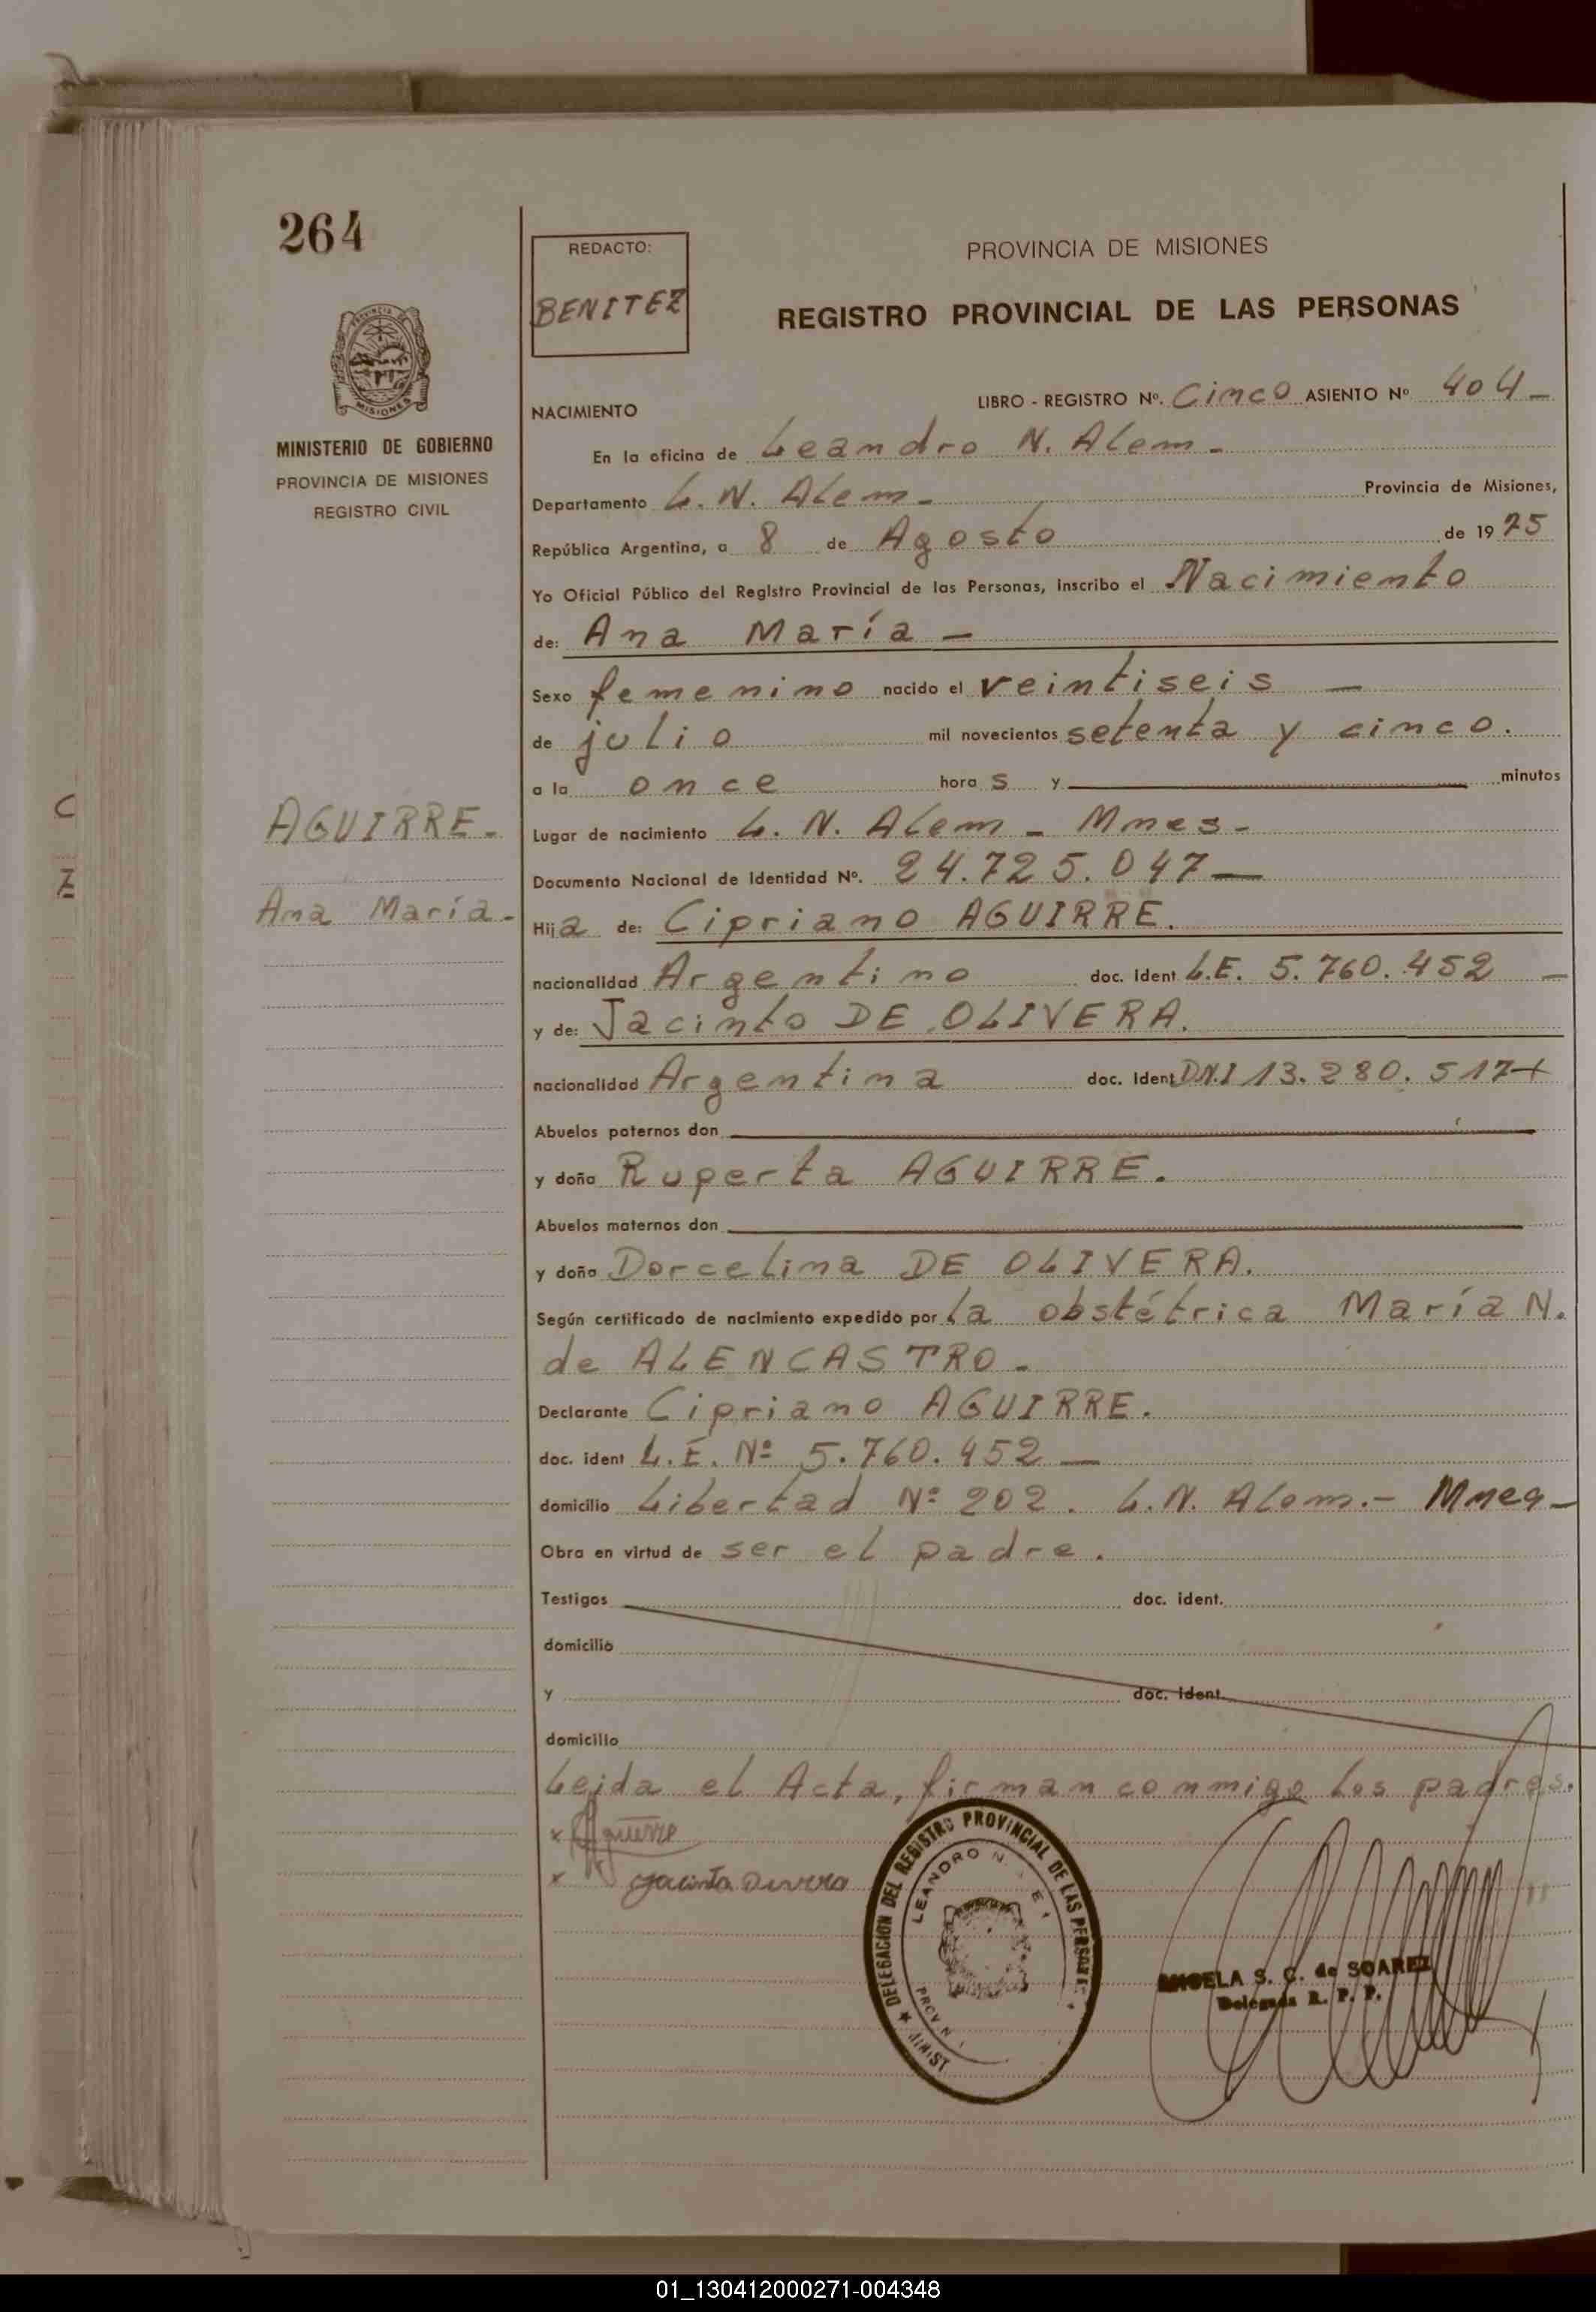 264
REDACTO:
BENITEZ
PROVINCIA DE MISIONES
REGISTRO PROVINCIAL DE LAS PERSONAS
PROVINCIA DE
MISIONES
MINISTERIO DE GOBIERNO
PROVINCIA DE MISIONES
REGISTRO CIVIL
NACIMIENTO
LIBRO - REGISTRO Nº. Cinco ASIENTO Nº 404 -
En la oficina de Leandro N. Alem -
Departamento L. N. Alem - Provincia de Misiones,
República Argentina, a 8 de Agosto de 1975
Yo Oficial Público del Registro Provincial de las Personas, inscribo el Nacimiento
de: Ana María -
Sexo femenino nacido el veintiseis -
de julio mil novecientos setenta y cinco.
a la once horas y minutos
AGUIRRE -
Ana María -
Lugar de nacimiento L. N. Alem - Mnes -
Documento Nacional de Identidad Nº. 24.725.047 -
Hija de: Cipriano AGUIRRE.
nacionalidad Argentino doc. Ident L.E. 5.760.452 -
y de: Jacinto DE OLIVERA.
nacionalidad Argentina doc. Ident D.N.I 13.280.517
Abuelos paternos don
y doña Ruperta AGUIRRE.
Abuelos maternos don
y doña Dorcelina DE OLIVERA.
Según certificado de nacimiento expedido por la obstétrica María N.
de ALENCASTRO -
Declarante Cipriano AGUIRRE.
doc. ident L.E. Nº 5.760.452 -
domicilio Libertad Nº 202. L.N. Alem.- Mnes -
Obra en virtud de ser el padre.
Testigos doc. ident.
domicilio
y doc. ident.
domicilio
Leida el Acta, firman conmigo los padres.
x Aguirre
x Jacinta
DELEGACION DEL REGISTRO PROVINCIAL DE LAS PERSONAS
LEANDRO N.
ANGELA S. C. de SOAREZ
Delegada R. P. P.
01_130412000271-004348